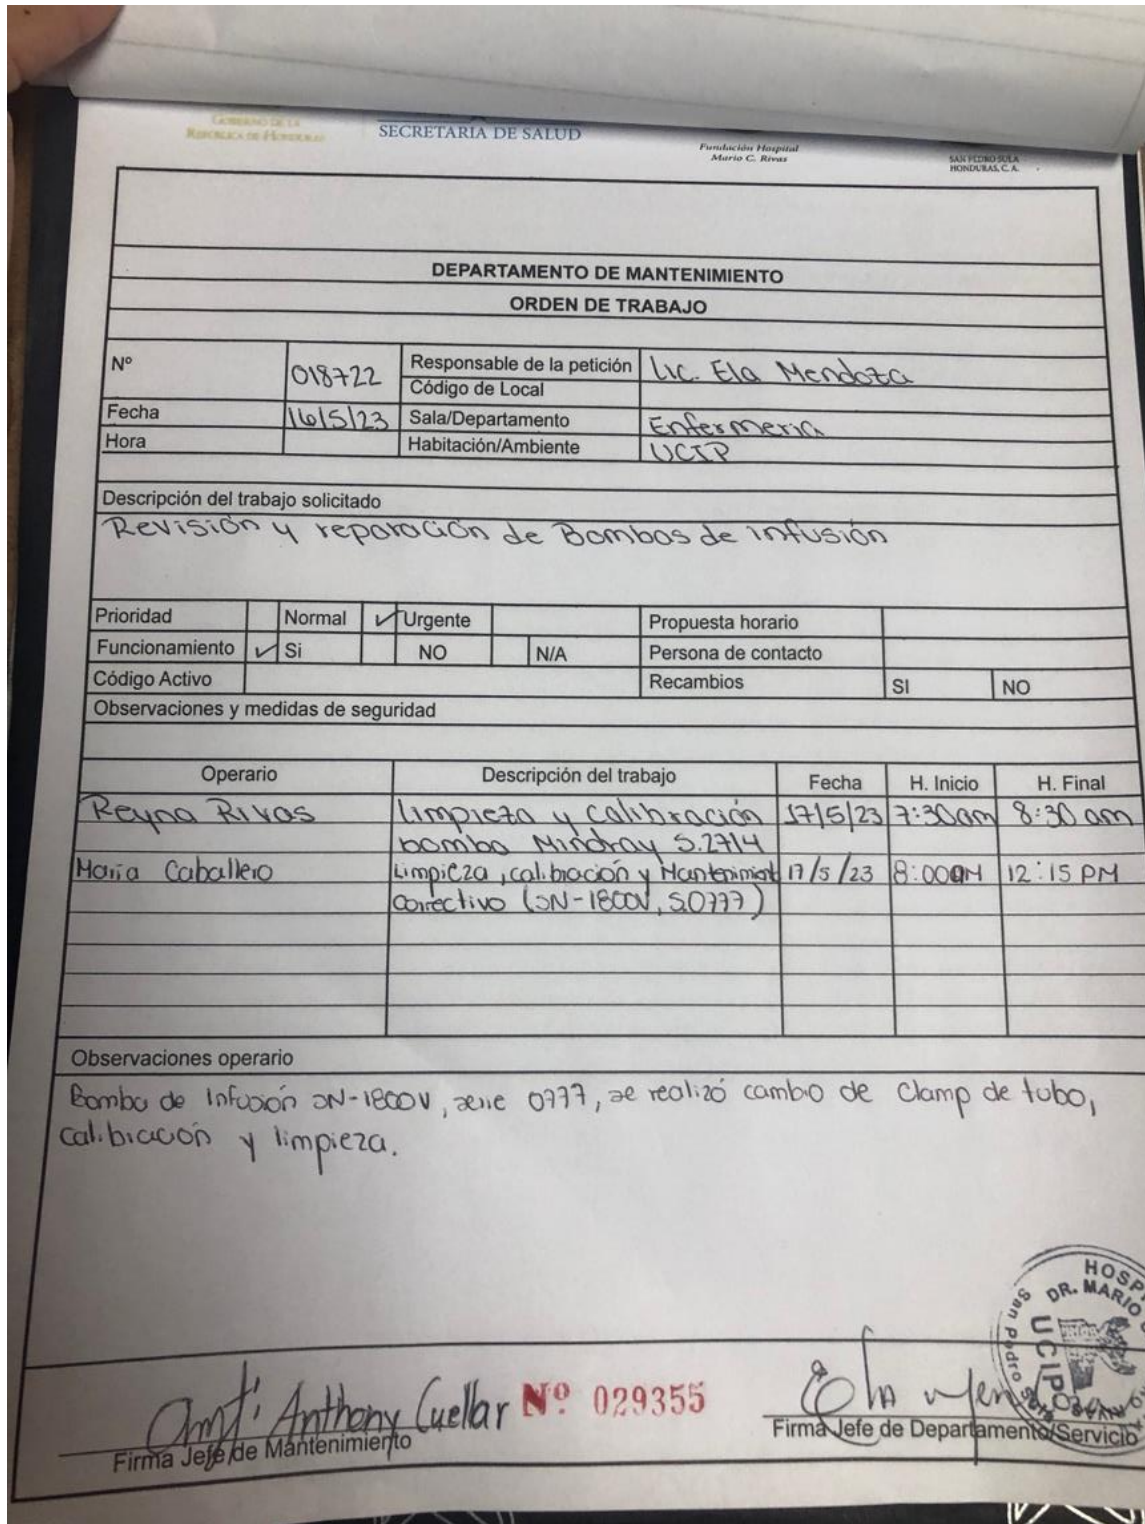 GOBIERNO DE LA
REPÚBLICA DE HONDURAS
SECRETARIA DE SALUD
Fundación Hospital
Mario C. Rivas
SAN PEDRO SULA
HONDURAS, C.A.
DEPARTAMENTO DE MANTENIMIENTO
ORDEN DE TRABAJO
Nº 018722 Responsable de la petición Lic. Ela Mendoza
Código de Local
Fecha 16/5/23 Sala/Departamento Enfermeria
Hora Habitación/Ambiente UCIP
Descripción del trabajo solicitado
Revisión y reparación de Bombas de infusión
Prioridad Normal ✓ Urgente Propuesta horario
Funcionamiento ✓ Si NO N/A Persona de contacto
Código Activo Recambios SI NO
Observaciones y medidas de seguridad
Operario Descripción del trabajo Fecha H. Inicio H. Final
Reyna Rivas limpieza y calibración 17/5/23 7:30am 8:30 am
bomba Mindray S.2714
Maria Caballero Limpieza, calibración y Mantenimient 17/5/23 8:00AM 12:15 PM
correctivo (SN-1800V, S.0777)
Observaciones operario
Bomba de Infusión SN-1800V, serie 0777, se realizó cambio de Clamp de tubo,
calibración y limpieza.
HOSP
DR. MARIO
San Pedro Sula
UCIP
RIVAS
Anthony Cuellar Nº 029355 Ela Men
Firma Jefe de Mantenimiento Firma Jefe de Departamento/Servicio